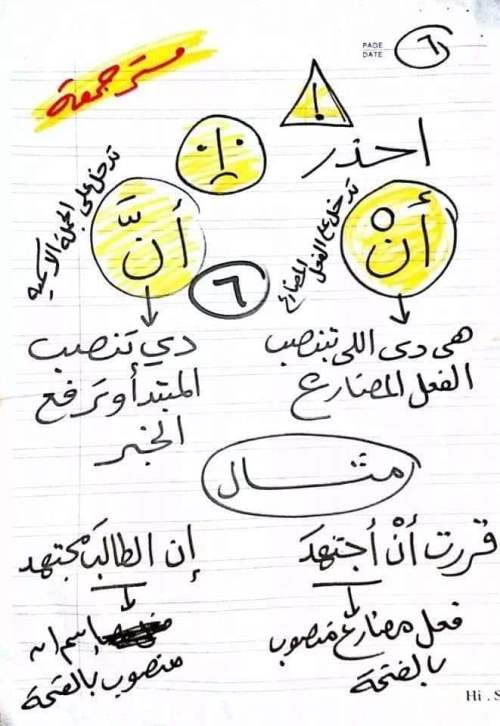 PAGE
DATE
٦
مستر جمعة
!
احذر
أنْ
تدخل ع الفعل المضارع
هى دى اللى بتنصب
الفعل المضارع
أنَّ
تدخل على الجملة الاسمية
دي تنصب
المبتدأ وترفع
الخبر
٦
مثال
قررت أنْ أجتهدَ
فعل مضارع منصوب
بالفتحة
إن الطالبَ مجتهد
إسم إن
منصوب بالفتحة
Hi . S